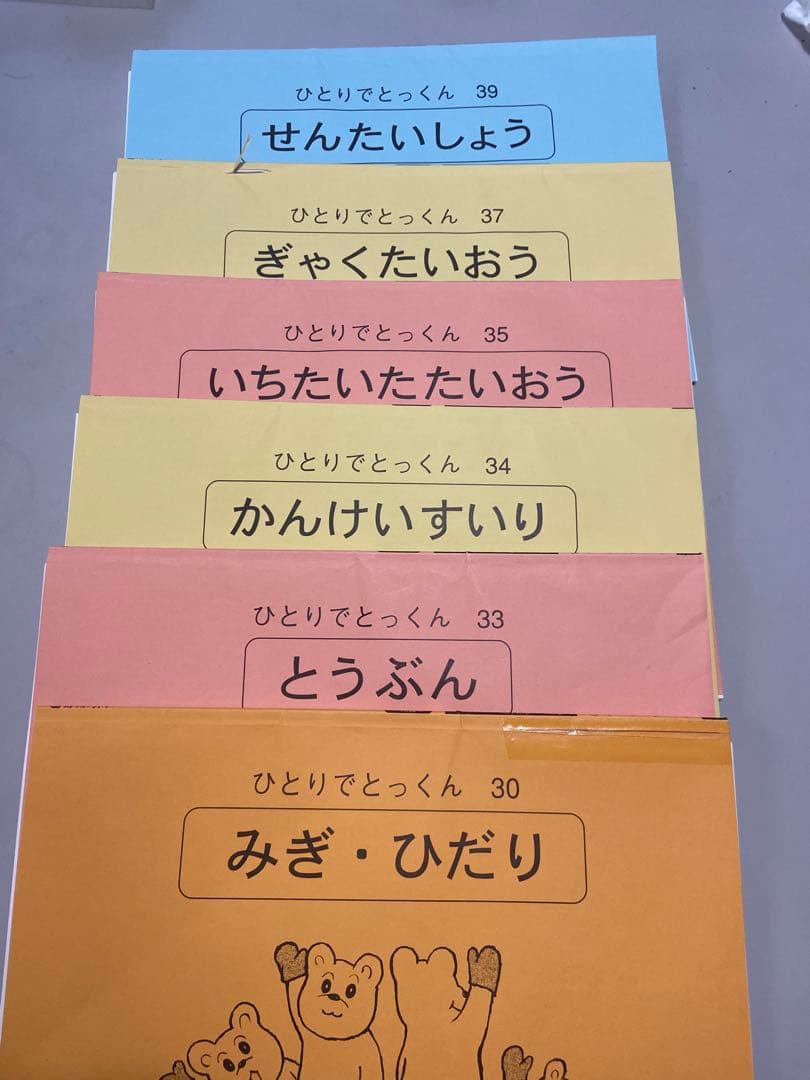 ひとりでとっくん 39
せんたいしょう
ひとりでとっくん 37
ぎゃくたいおう
ひとりでとっくん 35
いちたいたたいおう
ひとりでとっくん 34
かんけいすいり
ひとりでとっくん 33
とうぶん
ひとりでとっくん 30
みぎ・ひだり